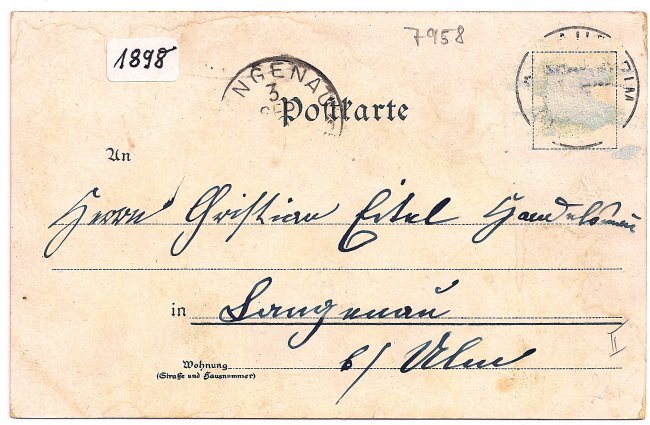 7958
1898
NGENAU
3
Postkarte
An
Herrn Christian Eitel Handelsmann
in Langenau
b/ Ulm
Wohnung
(Straße und Hausnummer)
II